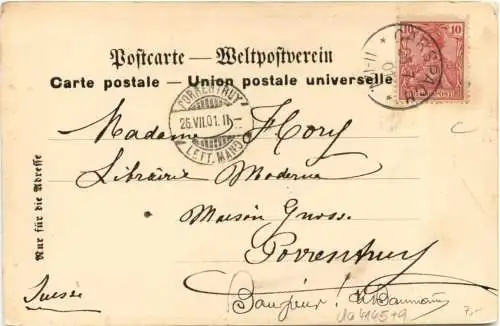 Postcarte — Weltpostverein
Carte postale — Union postale universelle
10 10
PORRENTRUY
26.VII.01.11
LETT. MAND.
Nur für die Adresse
Madame Flory
Librairie Moderne
Maison Gross.
Porrentruy
Suisse
Bonjour!